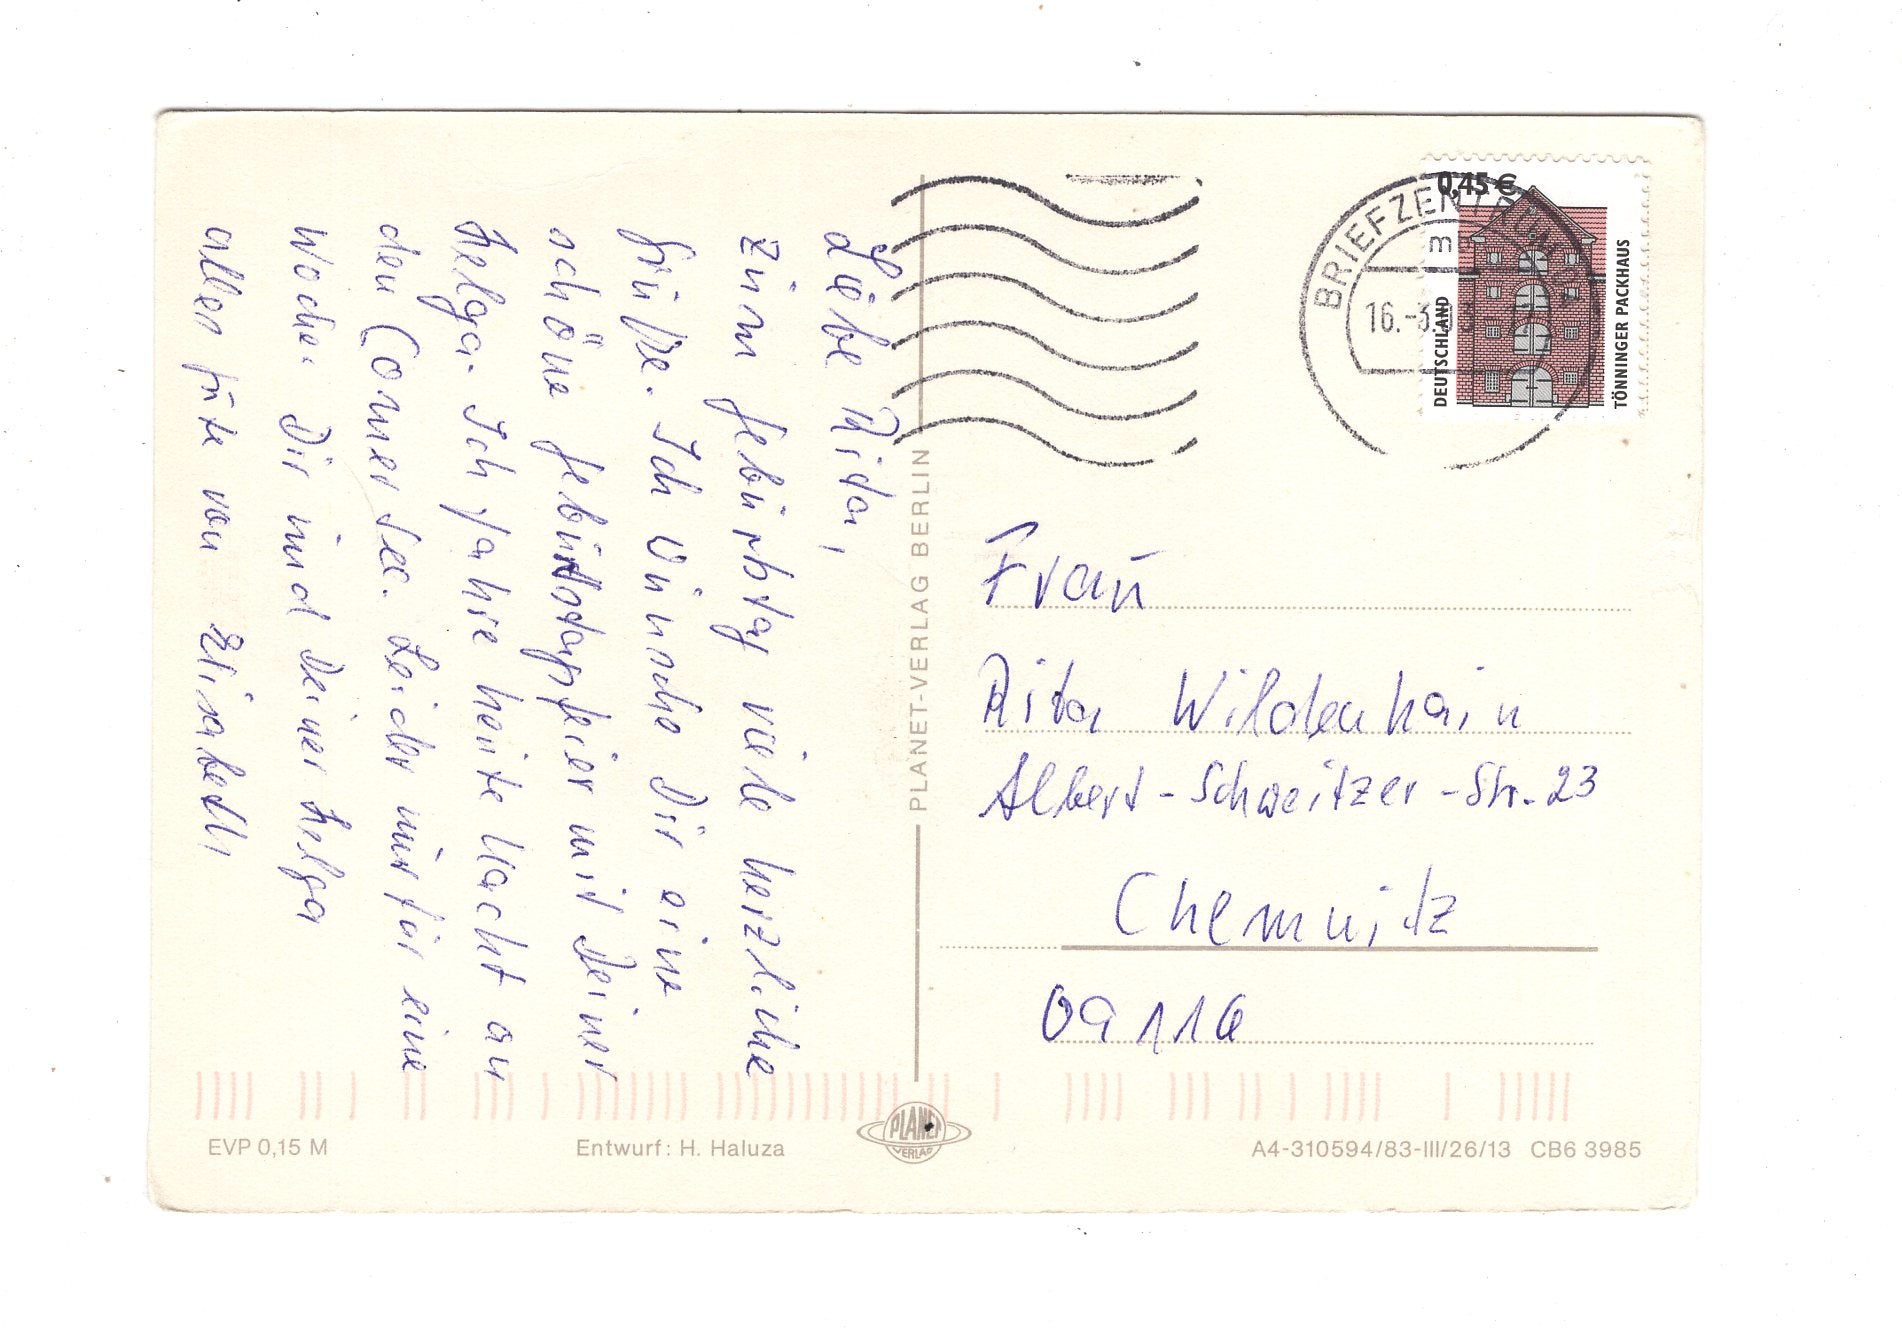 Liebe Rita,
zum Geburtstag viele herzliche
Grüße. Ich wünsche Dir eine
schöne Geburtstagsfeier mit Deiner
Helga. Ich fahre heute Nacht an
den Comer See. Leider nur für eine
Woche. Dir und Deiner Helga
alles Gute von Elisabeth
PLANET-VERLAG BERLIN
BRIEFZENTRUM
16.-3.03
0,45 €
DEUTSCHLAND
TÖNNINGER PACKHAUS
Frau
Rita Wildenhain
Albert-Schweitzer-Str. 23
Chemnitz
09116
EVP 0,15 M
Entwurf: H. Haluza
PLANET
VERLAG
A4-310594/83-III/26/13 CB6 3985